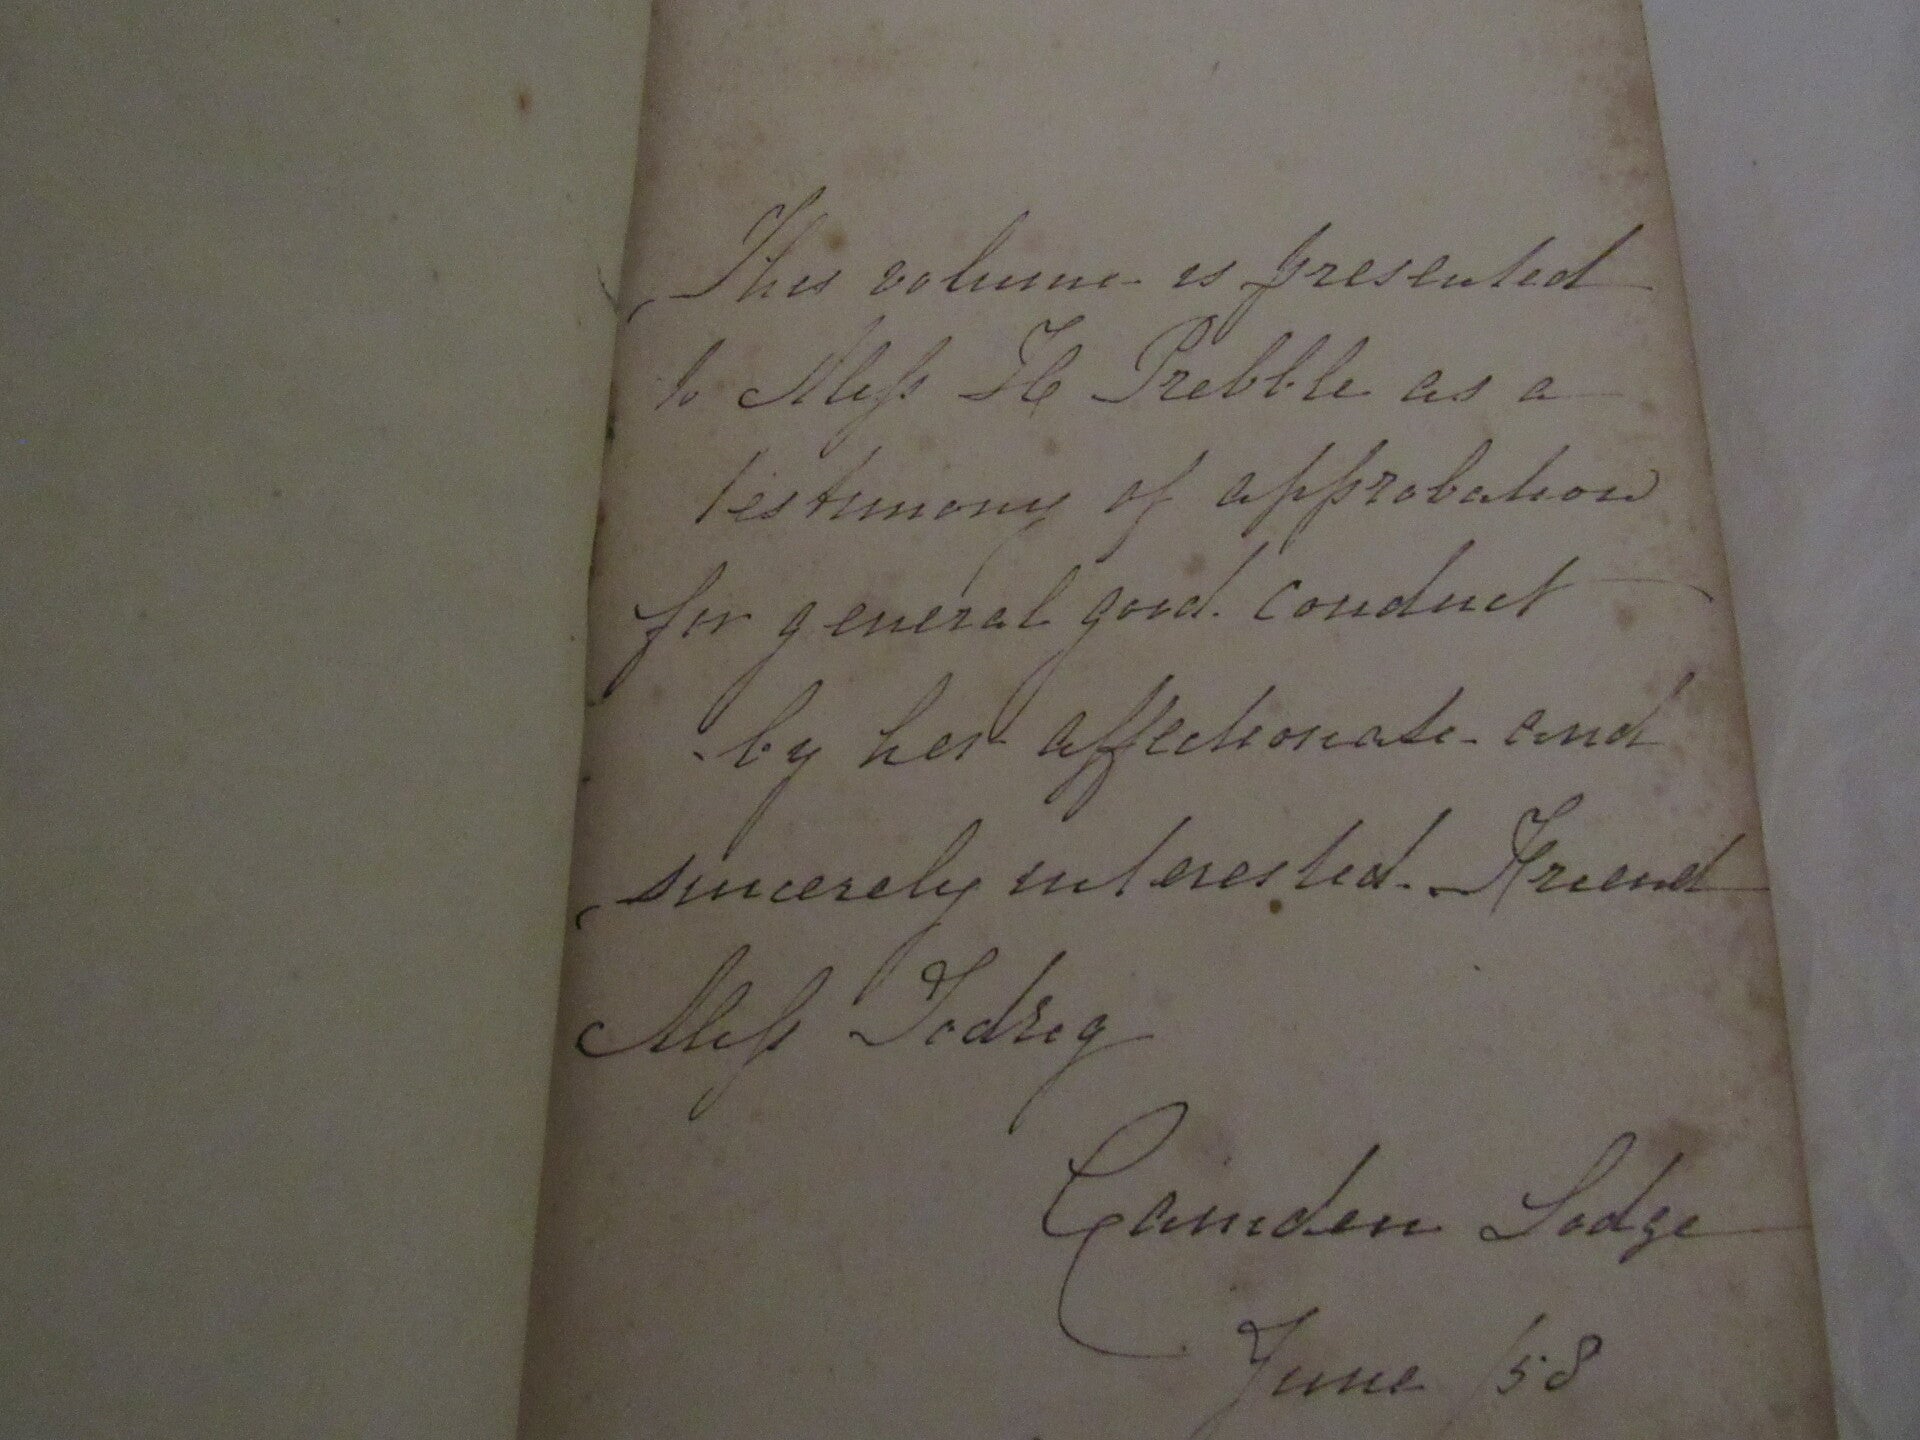 This volume is presented
to Miss H Prebble as a
testimony of approbation
for general good conduct
by her affectionate and
sincerely interested Friend
Miss
Camden Lodge
June /58